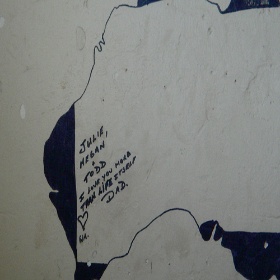 JULIE,
MEGAN
+
TODD
I LOVE YOU MORE
THAN LIFE ITSELF
DAD.